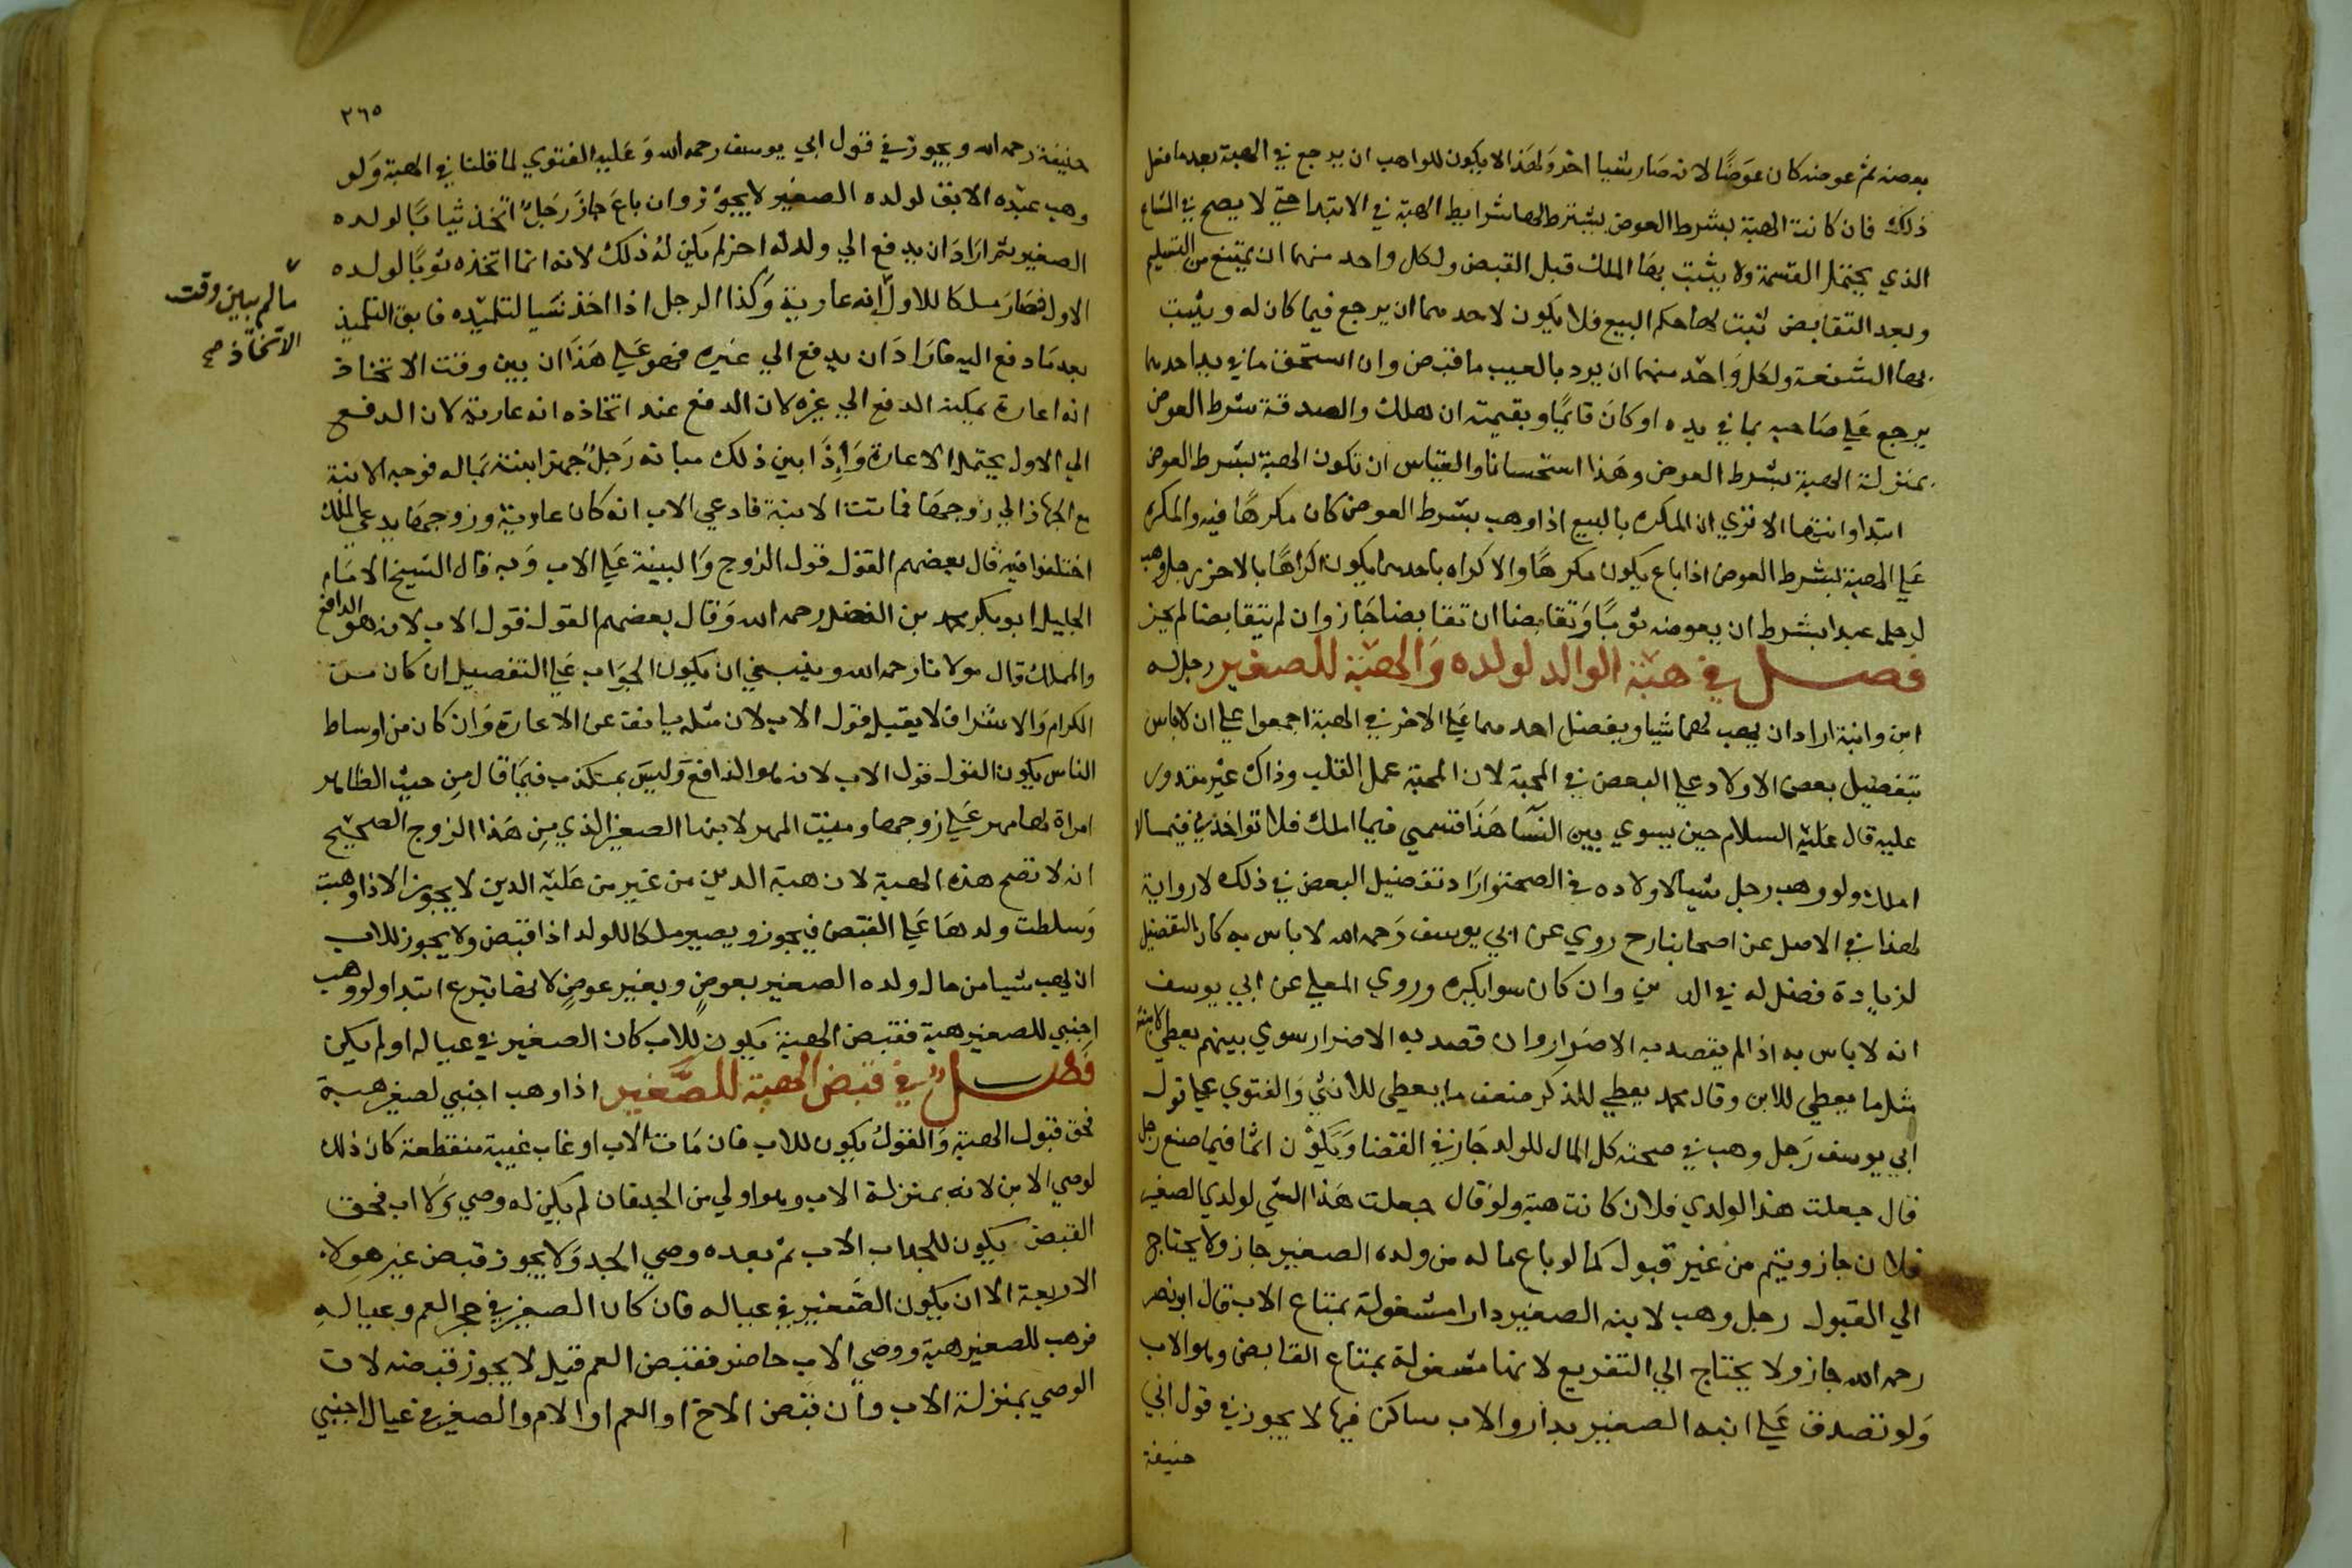 بعضه ثم عوضه كان عوَضًا لانه صَار شيا اخر وَلهَذا لا يكون للواهب ان يرجع في الهبة بعدما فعل
ذلك فان كانت الهبة بشرط العوض يشترط لها شرايط الهبة في الابتدا حتي لا يصح في المشاع
الذي يحتمل القسمة ولا يثبت بها الملك قبل القبض ولكل واحد منهما ان يمتنع من التسليم
وبعد التقابض ثبت لها حكم البيع فلا يكون لاحدهما ان يرجع فيما كان له ويثبت
بها الشفعة ولكل وَاحد منهما ان يرد بالعيب ما قبض وان استحق ما في يد احدهما
يرجع عَلي صَاحبه بما في يده او كانَ قايمًا وبقيمته ان هلك والصدقة بشرط العوض
بمنزلة الهبة بشرط العوض وهَذا استحسانا والقياس ان تكون الهبة بشرط العوض
ابتدا وانتها الا تري ان المكره بالبيع اذا وهب بشرط العوض كان مكرهًا فيه والمكره
عَلي الهبة بشرط العوض اذا باع يكون مكرهًا والاكراه باحدهما يكون اكراهًا بالاخر رجل وهب
لرجل عبدا بشرط ان يعوضه ثوبًا وَتقابضا ان تقابضا جَاز وان لم يتقابضا لم يجز
فصل في هبة الوالد لولده وَالهبة للصغير رجل له
ابن وابنة اراد ان يهب لهما شيا ويفضل احدهما عَلي الاخر في الهبة اجمعوا علي ان لا باس
بتفضيل بعض الاولاد علي البعض في المحبة لان المحبة عمل القلب وذاك غير مقدور
عليه قال عَليه السلام حين يسوي بين النسَا هَذَا قسمي فيما املك فلا تواخذني فيما لا
املك ولو وهب رجل شيا لاولاده في الصحة وارَاد تفضيل البعض في ذلك لا رواية
لهذا في الاصل عن اصحابنا رح روي عن ابي يوسف رَحمه الله لا باس به كان التفضيل
لزيادة فضل له في الدين وان كان سوا يكره وروي المعلي عن ابي يوسف
انه لا باس به اذا لم يقصد به الاضرار وان قصد به الاضرار سوي بينهم يعطي الابنة
مثل ما يعطي للابن وقال محمد يعطي للذكر ضعف ما يعطي للانثي وَالفتوي علي قول
ابي يوسف رَجل وهب في صحته كل المال للولد جَاز في القضا وَيَكوْن اثمًا فيما صنع رجل
قال جعلت هذا لولدي فلان كانت هبة ولوْ قال جعلت هَذا الشي لولدي الصغير
فلان جاز ويتم من غير قبول كما لو باع ماله من ولده الصغير جاز ولا يحتاج
الي القبول رجل وهب لابنه الصغير دارا مشغولة بمتاع الاب قال ابو نصر
رحمه الله جاز ولا يحتاج الي التفريع لانها مشغولة بمتاع القابض وهو الاب
وَلو تصدق عَلي ابنه الصغير بدار والاب ساكن فيها لا يجوز في قول ابي
حنيفة
٣٦٥
حنيفة رحمه الله ويجوز في قول ابي يوسف رحمه الله وَعَليه الفتوي لما قلنا في الهبة وَلو
وهب عبْده الابق لولده الصغير لا يجوْز وان باعَ جاز رَجلٌ اتخذ ثيابًا لولده
الصغير ثم ارَادَ ان يدفع الي ولد له اخر لم يكن لهُ ذلك لانه انما اتخذه ثوبًا لولده
الاول فصَارَ ملكا للاول إنه عارية وَكذا الرجل اذا اخذ شيا لتلميْذه فابق التلميذ
ما لم يبين وقت
الاتخاذ صح
بعد مَا دفع اليه فارَادَ ان يدفع الي غيره فهو عَلي هَذَا ان بين وقت الاتخاذ
انه اعارة يمكنه الدفع الي غيره لان الدفع عند اتخاذه انه عارية لان الدفع
الي الاول يحتمل الاعارة وَإِذَا بين ذلك مبانه رَجلٌ جهز ابنته بماله فوجه الابنة
مع الجهاز الي زوجهَا فماتت الابنة فادعي الاب انه كان عارية وزوجهَا يدعي الملك
اختلفوا فيه قال بعضهم القول قول الزوج وَالبينة عَلي الاب وَبه قال الشيخ الامَام
الجليل ابو بكر محمد بن الفضل رحمه الله وَقال بعضهم القول قول الاب لانه هو الدافع
والمملك قال مولانا رحمه الله وينبغي ان يكون الجوَاب عَلي التفصيل ان كان من
الكرام وَالاشراف لا يقبل قول الاب لان مثله يانف عن الاعارة وَان كان من اوساط
الناس يكون القول قول الاب لانه هو الدافع وَليسَ بمكذب فيمَا قال مِن حيث الظاهر
امراة لها مهر عَلي زوجها وهبت المهر لابنها الصغير الذي مِن هَذا الزوج الصحيح
انه لا تصح هذه الهبة لان هبة الدين من غير من عَليْه الدين لا يجوز الا اذا وهبت
وَسلطت ولدهَا عَلي القبض فيجوز ويصير ملكا للولد اذا قبض ولا يجوز للاب
ان يهب شيا من مال ولده الصغير بعوضٍ وبغير عوضٍ لانها تبرع ابتدا ولو وهب
اجنبي للصغير هبة فقبض الهبة يكون للاب كان الصغير في عياله او لم يكن
فصل في قبض الهبة للصَّغير اذا وهب اجنبي لصغير هبة
فحق قبول الهبة وَالقولُ يكون للاب فان مَات الاب او غاب غيبة منقطعة كان ذلك
لوصي الابن لانه بمنزلة الاب وهو اولي من الجد فان لم يكن له وصي وَلا اب فحق
القبض يكون للجد اب الاب ثم بعده وصي الجد وَلا يجوز قبض غير هولا
الاربعة الا ان يكون الصَّغير في عياله فان كان الصغير في حجر العم وعيالهِ
فوهب للصغير هبة ووصي الاب حاضر فقبض العم قيل لا يجوز قبضه لان
الوصي بمنزلة الاب وان قبض الاخ او العم او الام والصغير في عيال اجنبي